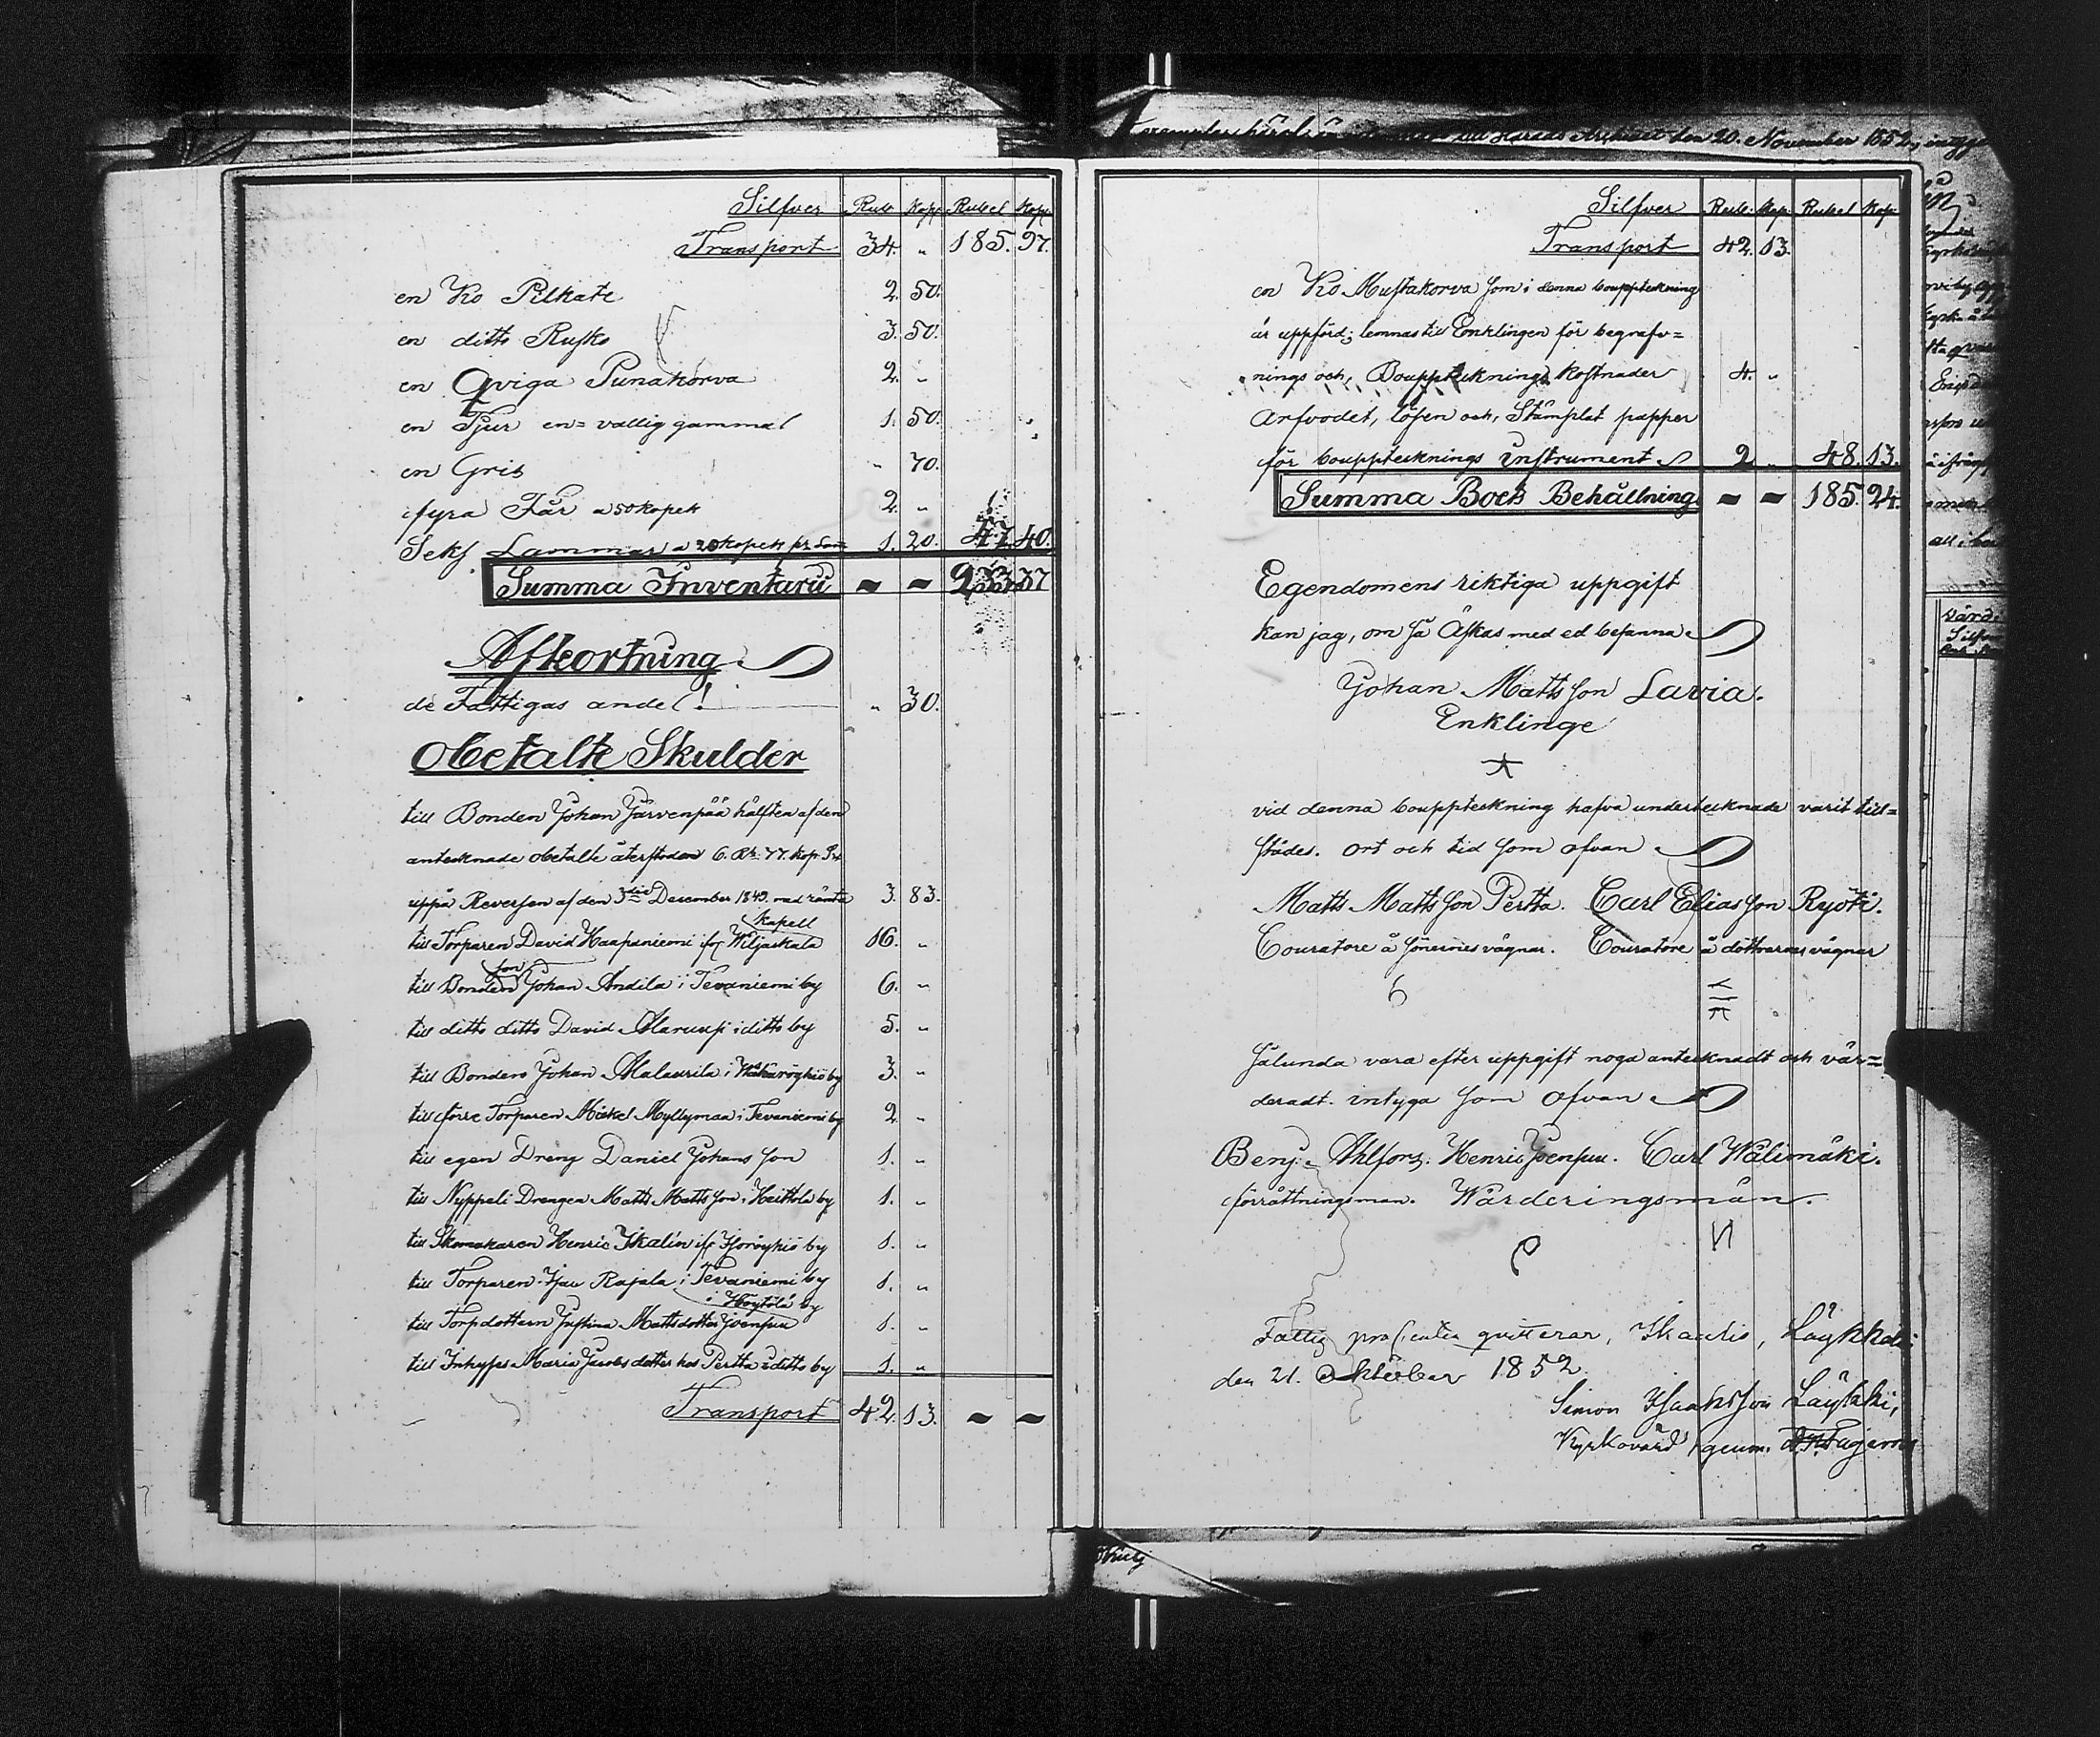 Silfver Rub Kopp Rubel Kop
Transport 34. " 185. 97.
en Ko Pilkate 2. 50.
en ditto Rusko 3. 50.
en Qviga Punakorva 2. "
en Tjur en= vallig gammal 1. 50.
en Gris " 70.
fyra Får a 50 kopek 2. "
Seks Lammar a 20 kopek pr 1. 20. 47 40.
Summa Inventarii - - 233 37
Afkortning
de Fattigas andel! " 30.
Obetalte Skulder
till Bonden Johan Järvenpää hälften af den
antecknade obetalte återstoden 6. Rb: 77. kop. Sr
uppå Reversen af den 3die December 1849. med ränta 3. 83.
Kapell
till Torparen David Haapaniemi if Wiljackala 16. "
son
till Bonden Johan Andila i Tevaniemi by 6. "
till ditto ditto David i ditto by 5. "
till Bonden Johan Alalaurila i by 3. "
till förre Torparen Mickel Myllymaa i Tevaniemi by 2. "
till egen Dreng Daniel Johans son 1. "
till Nyppeli Drengen Matts Matts son i Heittola by 1. "
till Skomakaren Henric Ikalin if by 1. "
till Torparen Isac Rajala i Tevaniemi by 1. "
i Höytölä by
till Torpdottern Justina Mattsdotter Joensuu 1. "
till Inhyses Maria Jacobs dotter hos Pertta i ditto by 1. "
Transport 42. 13. - -
exemplar den 20. November 1852, intyga
Silfver Rub. Kop. Rubel Kop
Transport 42. 13.
en Ko Mustakorva som i denna bouppteckning
är uppförd; lemnas till Enklingen för begrafv=
nings och, Bouppteknings kostnader 4. "
Arfvodet, lösen och, Stämplat papper
för boupptecknings instrument 2 " 48. 13.
Summa Boets Behållning - - 185. 24.
Egendomens riktiga uppgift
kan jag, om så Äskas med ed besanna
Johan Matts son Lavia.
Enklinge
vid denna bouppteckning hafva undertecknade varit till=
städes. ort och tid som ofvan
Matts Matts son Pertta. Carl Elias son Ryöti.
Couratore å sönernes vägnar. Couratore å döttrarnes vägnar
Sålunda vara efter uppgift noga antecknadt och vär=
deradt. intyga som ofvan
Benj. Ahlfors. Henric Joensuu. Carl Wälimäki.
förrättningsman. Wärderingsmän.
Fattig procenten qvitterar, Ikalis,
den 21. Oktober 1852.
Simon Isaksson
Kyrkovärd genm.